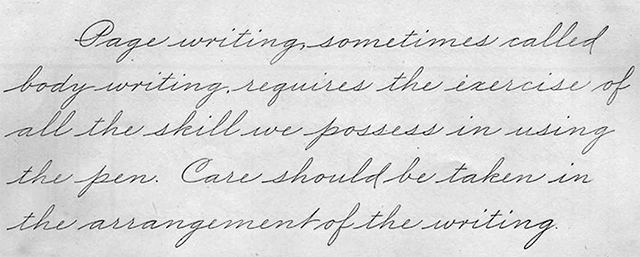 Page writing, sometimes called
body writing, requires the exercise of
all the skill we possess in using
the pen. Care should be taken in
the arrangement of the writing.